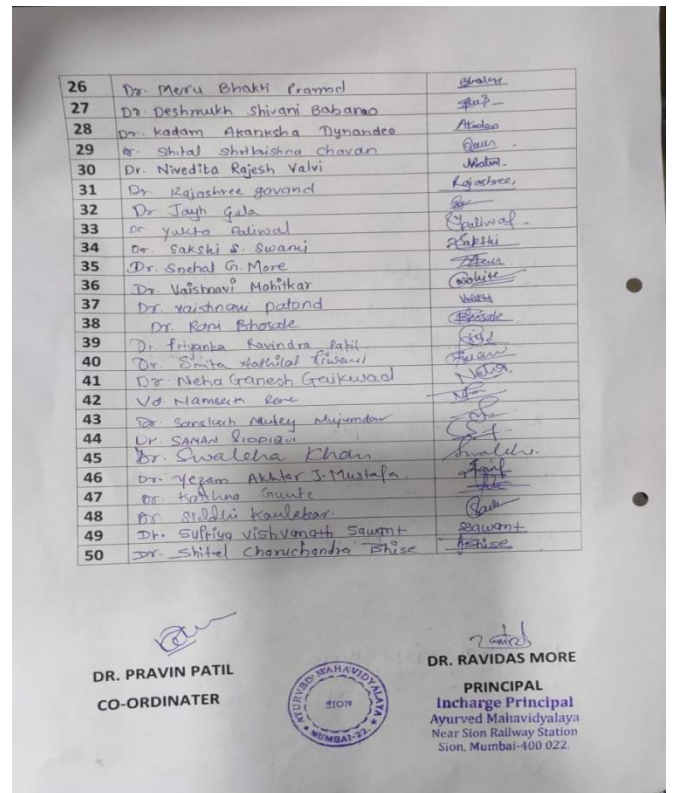 26 Dr. Merru Bhakti Pramod Bhakti
27 Dr. Deshmukh Shivani Babarao
28 Dr. Kadam Akanksha Dynandeo
29 Dr. Shital Shrikrishna Chavan
30 Dr. Nivedita Rajesh Valvi
31 Dr. Rajashree govand Rajashree
32 Dr. Jayti Gala
33 Dr Yukta Paliwal YPaliwal
34 Dr. Sakshi S. Swami Sakshi
35 Dr. Snehal G. More
36 Dr. Vaishnavi Mohitkar
37 Dr. vaishnavi patond
38 Dr. Rani Bhosale Bhosale
39 Dr. Priyanka Ravindra Patil
40 Dr. Smita Nathilal Tiwari
41 Dr. Neha Ganesh Gaikwad Neha
42 Vd Namrata Rane
43 Dr. Sanskruti Mutey Mujumdar
44 Dr. SAMAN SIDDIQUI
45 Dr. Swaleha Khan Swaleha
46 Dr. Yezam Akhtar J. Mustafa
47 Dr.
48 Dr Siddhi
49 Dr. Supriya vishvanath Sawant Sawant
50 Dr. Shitel Charuchandra Bhise Bhise
DR. PRAVIN PATIL
CO-ORDINATER
AYURVED MAHAVIDYALAYA
SION
MUMBAI-22.
DR. RAVIDAS MORE
PRINCIPAL
Incharge Principal
Ayurved Mahavidyalaya
Near Sion Railway Station
Sion, Mumbai-400 022.